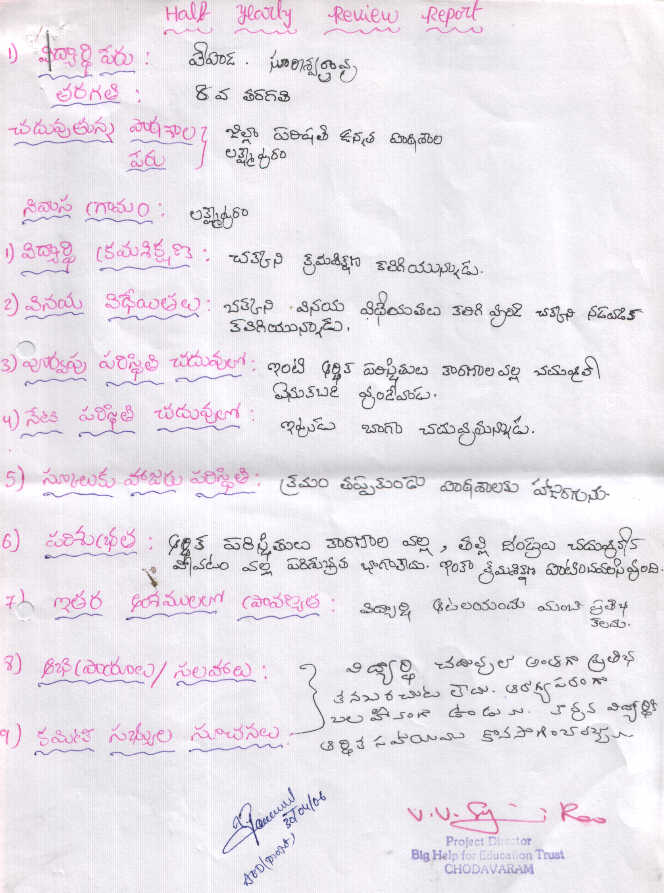 Half Yearly Review Report
1) విద్యార్థి పేరు : సూరిశ్వర్రావు
తరగతి : 8 వ తరగతి
చదువుతున్న పాఠశాల పేరు } జిల్లా పరిషతి ఉన్నత పాఠశాల
లక్ష్మీపురం
నివాస గ్రామం : లక్ష్మీపురం
1) విద్యార్థి క్రమశిక్షణ : చక్కని క్రమశిక్షణ కలిగియున్నాడు.
2) వినయ విధేయతలు : చక్కని వినయ విధేయతలు కలిగి వుండి చక్కని నడవడిక
కలిగియున్నాడు.
3) పూర్వపు పరిస్థితి చదువులో : ఇంటి ఆర్థిక పరిస్థితులు కారణాల వల్ల చదువులో
వెనుకబడి వుండేవాడు.
4) నేటి పరిస్థితి చదువులో : ఇప్పుడు బాగా చదువుతున్నాడు.
5) స్కూలుకు హాజరు పరిస్థితి : క్రమం తప్పకుండా పాఠశాలకు హాజరగును.
6) పరిశుభ్రత : ఆర్థిక పరిస్థితులు కారణాల వల్ల , తల్లి దండ్రులు
పోవటం వల్ల పరిశుభ్రత బాగాలేదు. ఇంకా క్రమశిక్షణ పాటించవలసివుంది.
7) ఇతర అంశములలో ప్రావీణ్యత : విద్యార్థి ఆటలయందు మంచి ప్రతిభ
కలదు.
8) అభిప్రాయాలు / సలహాలు : విద్యార్థి చదువులో అంతగా ప్రతిభ
కనబరచుట లేదు. ఆరోగ్యపరంగా
9) కమిటి సభ్యుల సూచనలు. బలహీనంగా ఉండును. కావున విద్యార్థికి
ఆర్థిక సహాయము కొనసాగించవచ్చును
30/04/06
V.V. Rao
Project Director
Big Help for Education Trust
CHODAVARAM